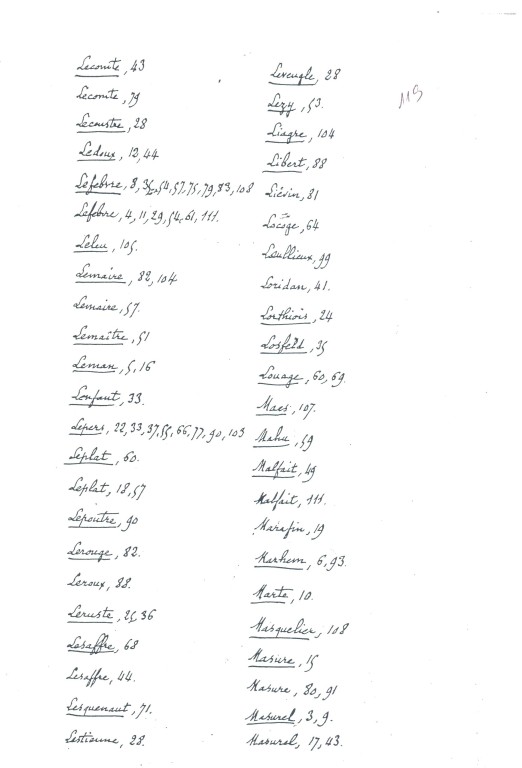 Lecomte, 43
Lecomte, 79
Lecoustre, 28
Ledoux, 12, 44
Lefebvre, 8, 35, 54, 57, 75, 79, 83, 108
Lefebvre, 4, 11, 29, 54, 61, 111.
Leleu, 105.
Lemaire, 82, 104
Lemaire, 57.
Lemaître, 51
Leman, 5, 16
Lenfant, 33.
Lepers, 22, 33, 37, 55, 66, 77, 90, 103
Leplat, 60.
Leplat, 18, 57
Lepoutre, 90
Lerouge, 82.
Leroux, 88.
Leruste, 25, 36
Lesaffre, 68
Lesaffre, 44.
Lesquenaut, 71.
Lestienne, 28.
Leveugle, 28
Lezy, 53.
Liagre, 104
Libert, 88
Liévin, 81
Locoge, 64
Leullieux, 99
Loridan, 41.
Lorthiois, 24
Losfeld, 35
Louage, 60, 69.
Maes, 107.
Mahu, 59
Malfait, 49
Malfait, 111.
Marafin, 19
Marhem, 6, 93.
Marte, 10.
Masquelier, 108
Masure, 15
Masure, 80, 91
Masurel, 3, 9.
Masurel, 17, 43.